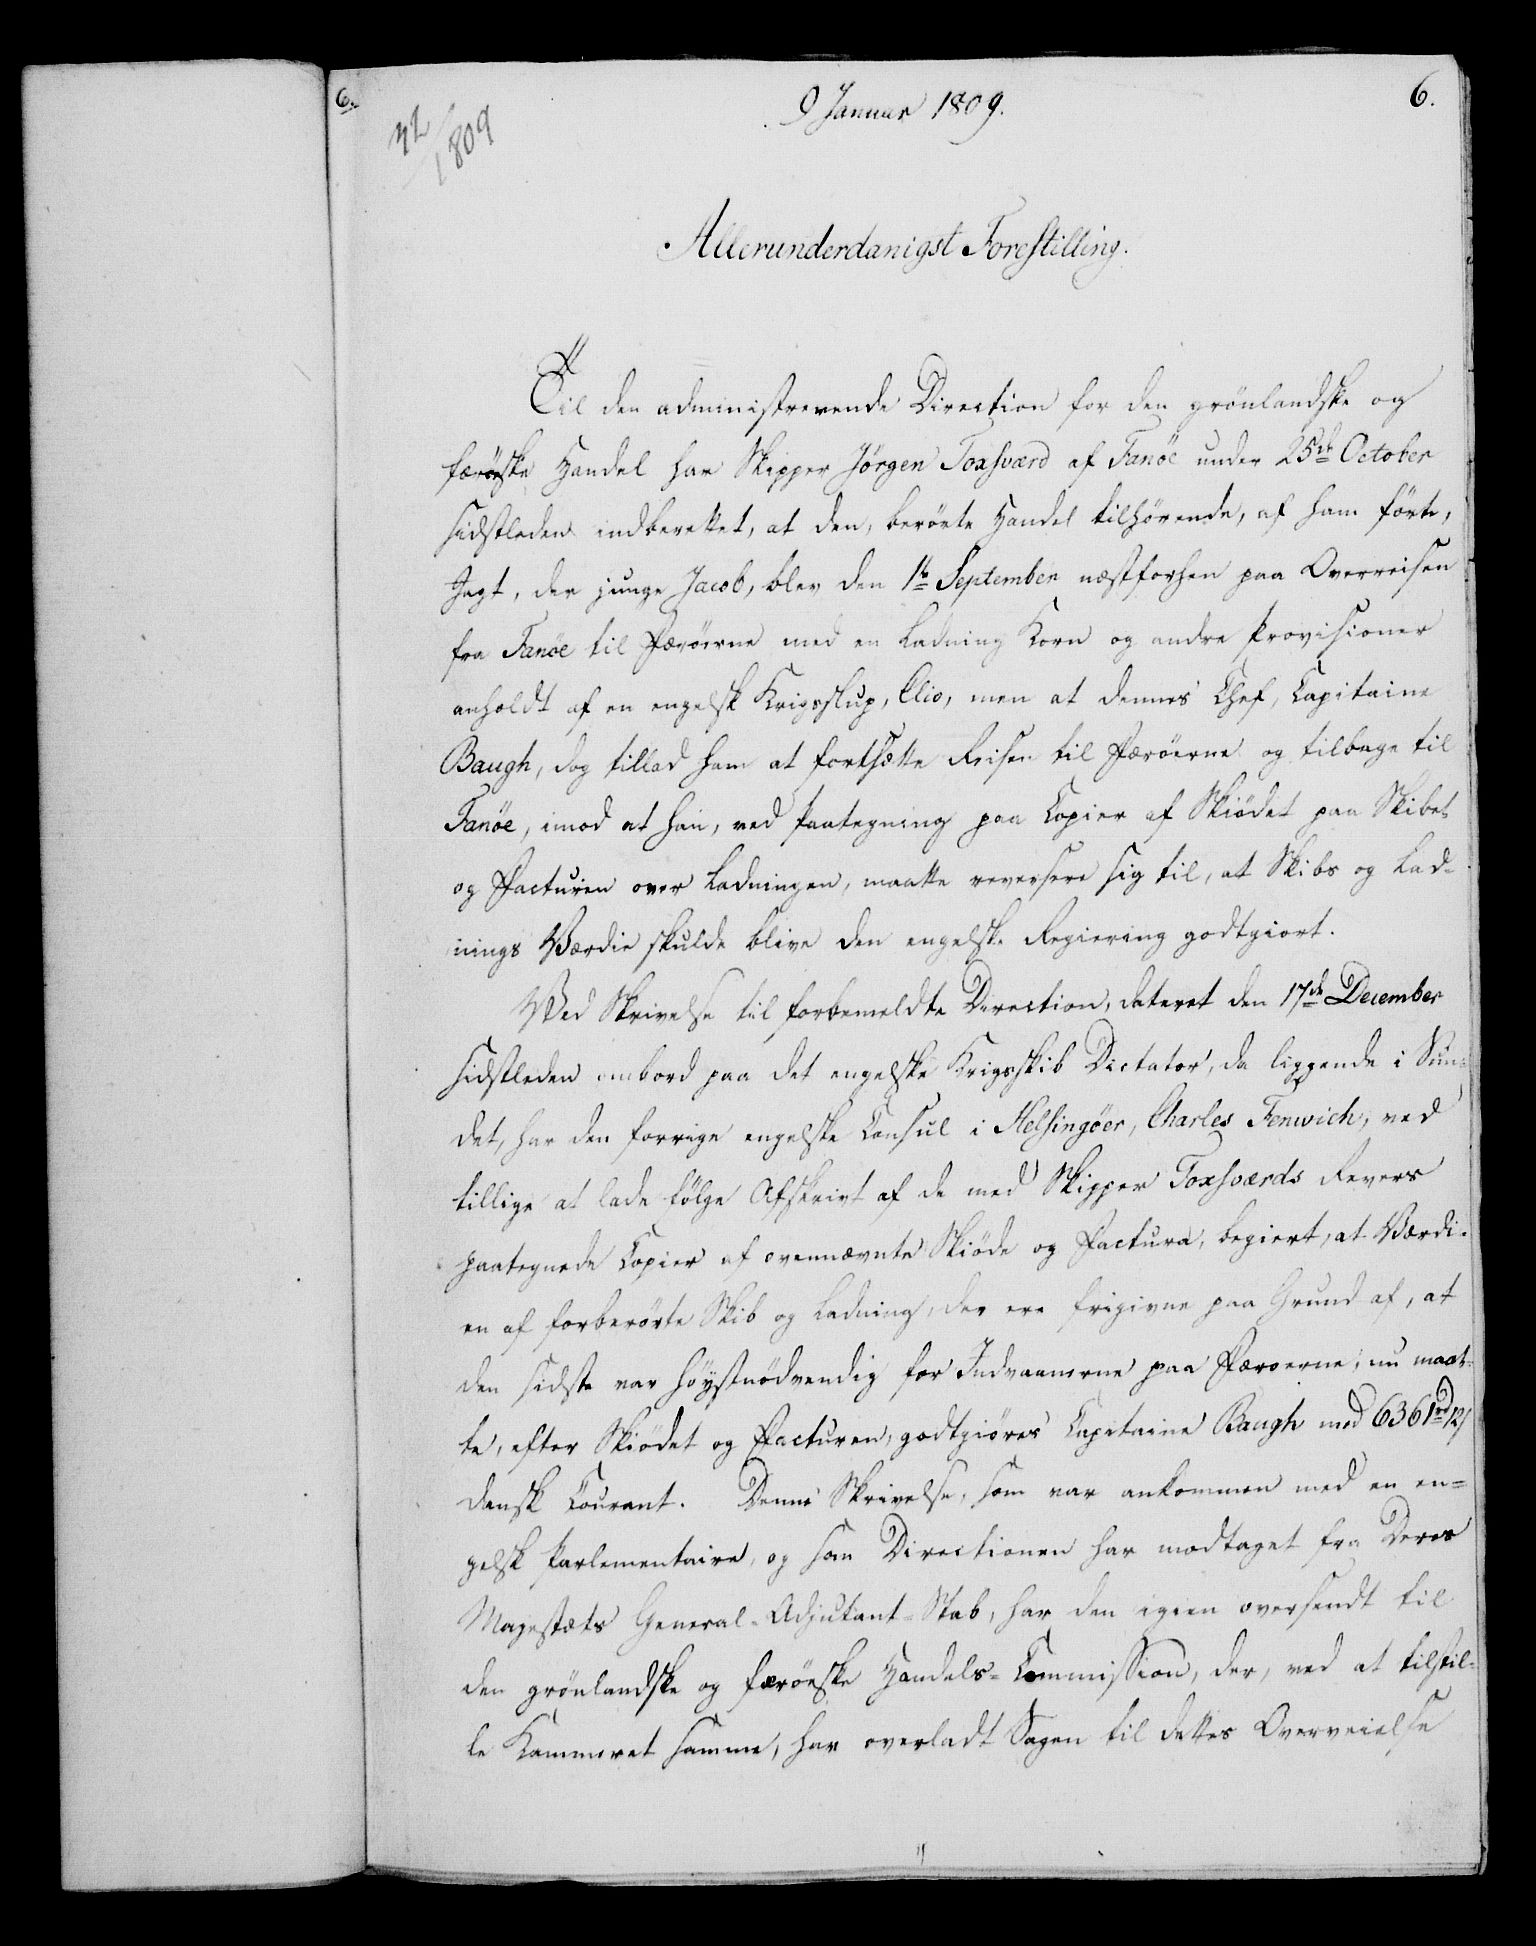 6.
9 Januar 1809.
6.
1809
Allerunderdanigst Forestilling.
Til den administrerende Direction for den grönlandske og
færöeske Handel har Skipper Jörgen Toxsværd af Fanöe under 25de October
sidstleden indberettet, at den, berörte Handel tilhörende, af ham förte,
Jagt, der junge Jacob, blev den 1te September næstforhen paa Overreisen
fra Fanöe til Færöerne med en Ladning Korn og andre Provisioner
anholdt af en engelsk Krigsslup, Clio, men at dennes Chef, Capitaine
Baugh, dog tillod ham at fortsætte Reisen til Færöerne og tilbage til
Fanöe, imod at han, ved Paategning paa Copier af Skiödet paa Skibet
og Facturen over Ladningen, maatte reversere sig til, at Skibs og Lad-
nings Værdie skulde blive den engelske Regiering godtgiort.
Ved Skrivelse til forbemeldte Direction, dateret den 17de December
sidstleden ombord paa det engelske Krigsskib Dictator, da liggende i Sun-
det, har den forrige engelske Consul i Helsingöer, Charles Fenwich, ved
tillige at lade fölge Afskrivt af de med Skipper Toxsværds Revers
paategnede Copier af ovennævnte Skiöde og Factura, begiert, at Værdi-
en af forberörte Skib og Ladning, der ere frigivne paa Grund af, at
den sidste var höystnödvendig for Indvaanerne paa Færoerne, nu maat-
te, efter Skiödet og Facturen, godtgiöres Capitaine Baugh med 6361rd 12s
dansk Courant. Denne Skrivelse, som var ankommen med en en-
gelsk Parlementaire, og som Directionen har modtaget fra Deres
Majestæts General-Adjutant-Stab, har den igien oversendt til
den grönlandske og færöeske Handels-Commission, der, ved at tilstil-
le Kammeret samme, har overladt Sagen til dettes Overveielse